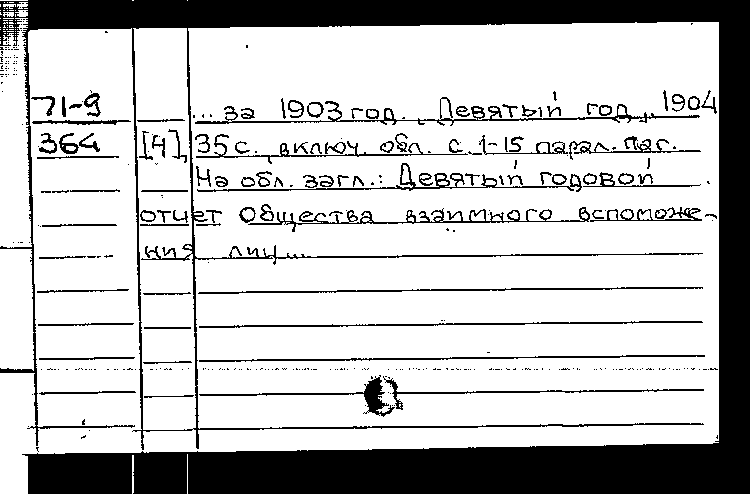 71-9 ... за 1903 год. Девятый год. 1904
364 [4], 35 с. включ. обл. с. 1-15 парал. паг.
На обл. загл.: Девятый годовой
отчет Общества взаимного вспоможе-
ния лиц...